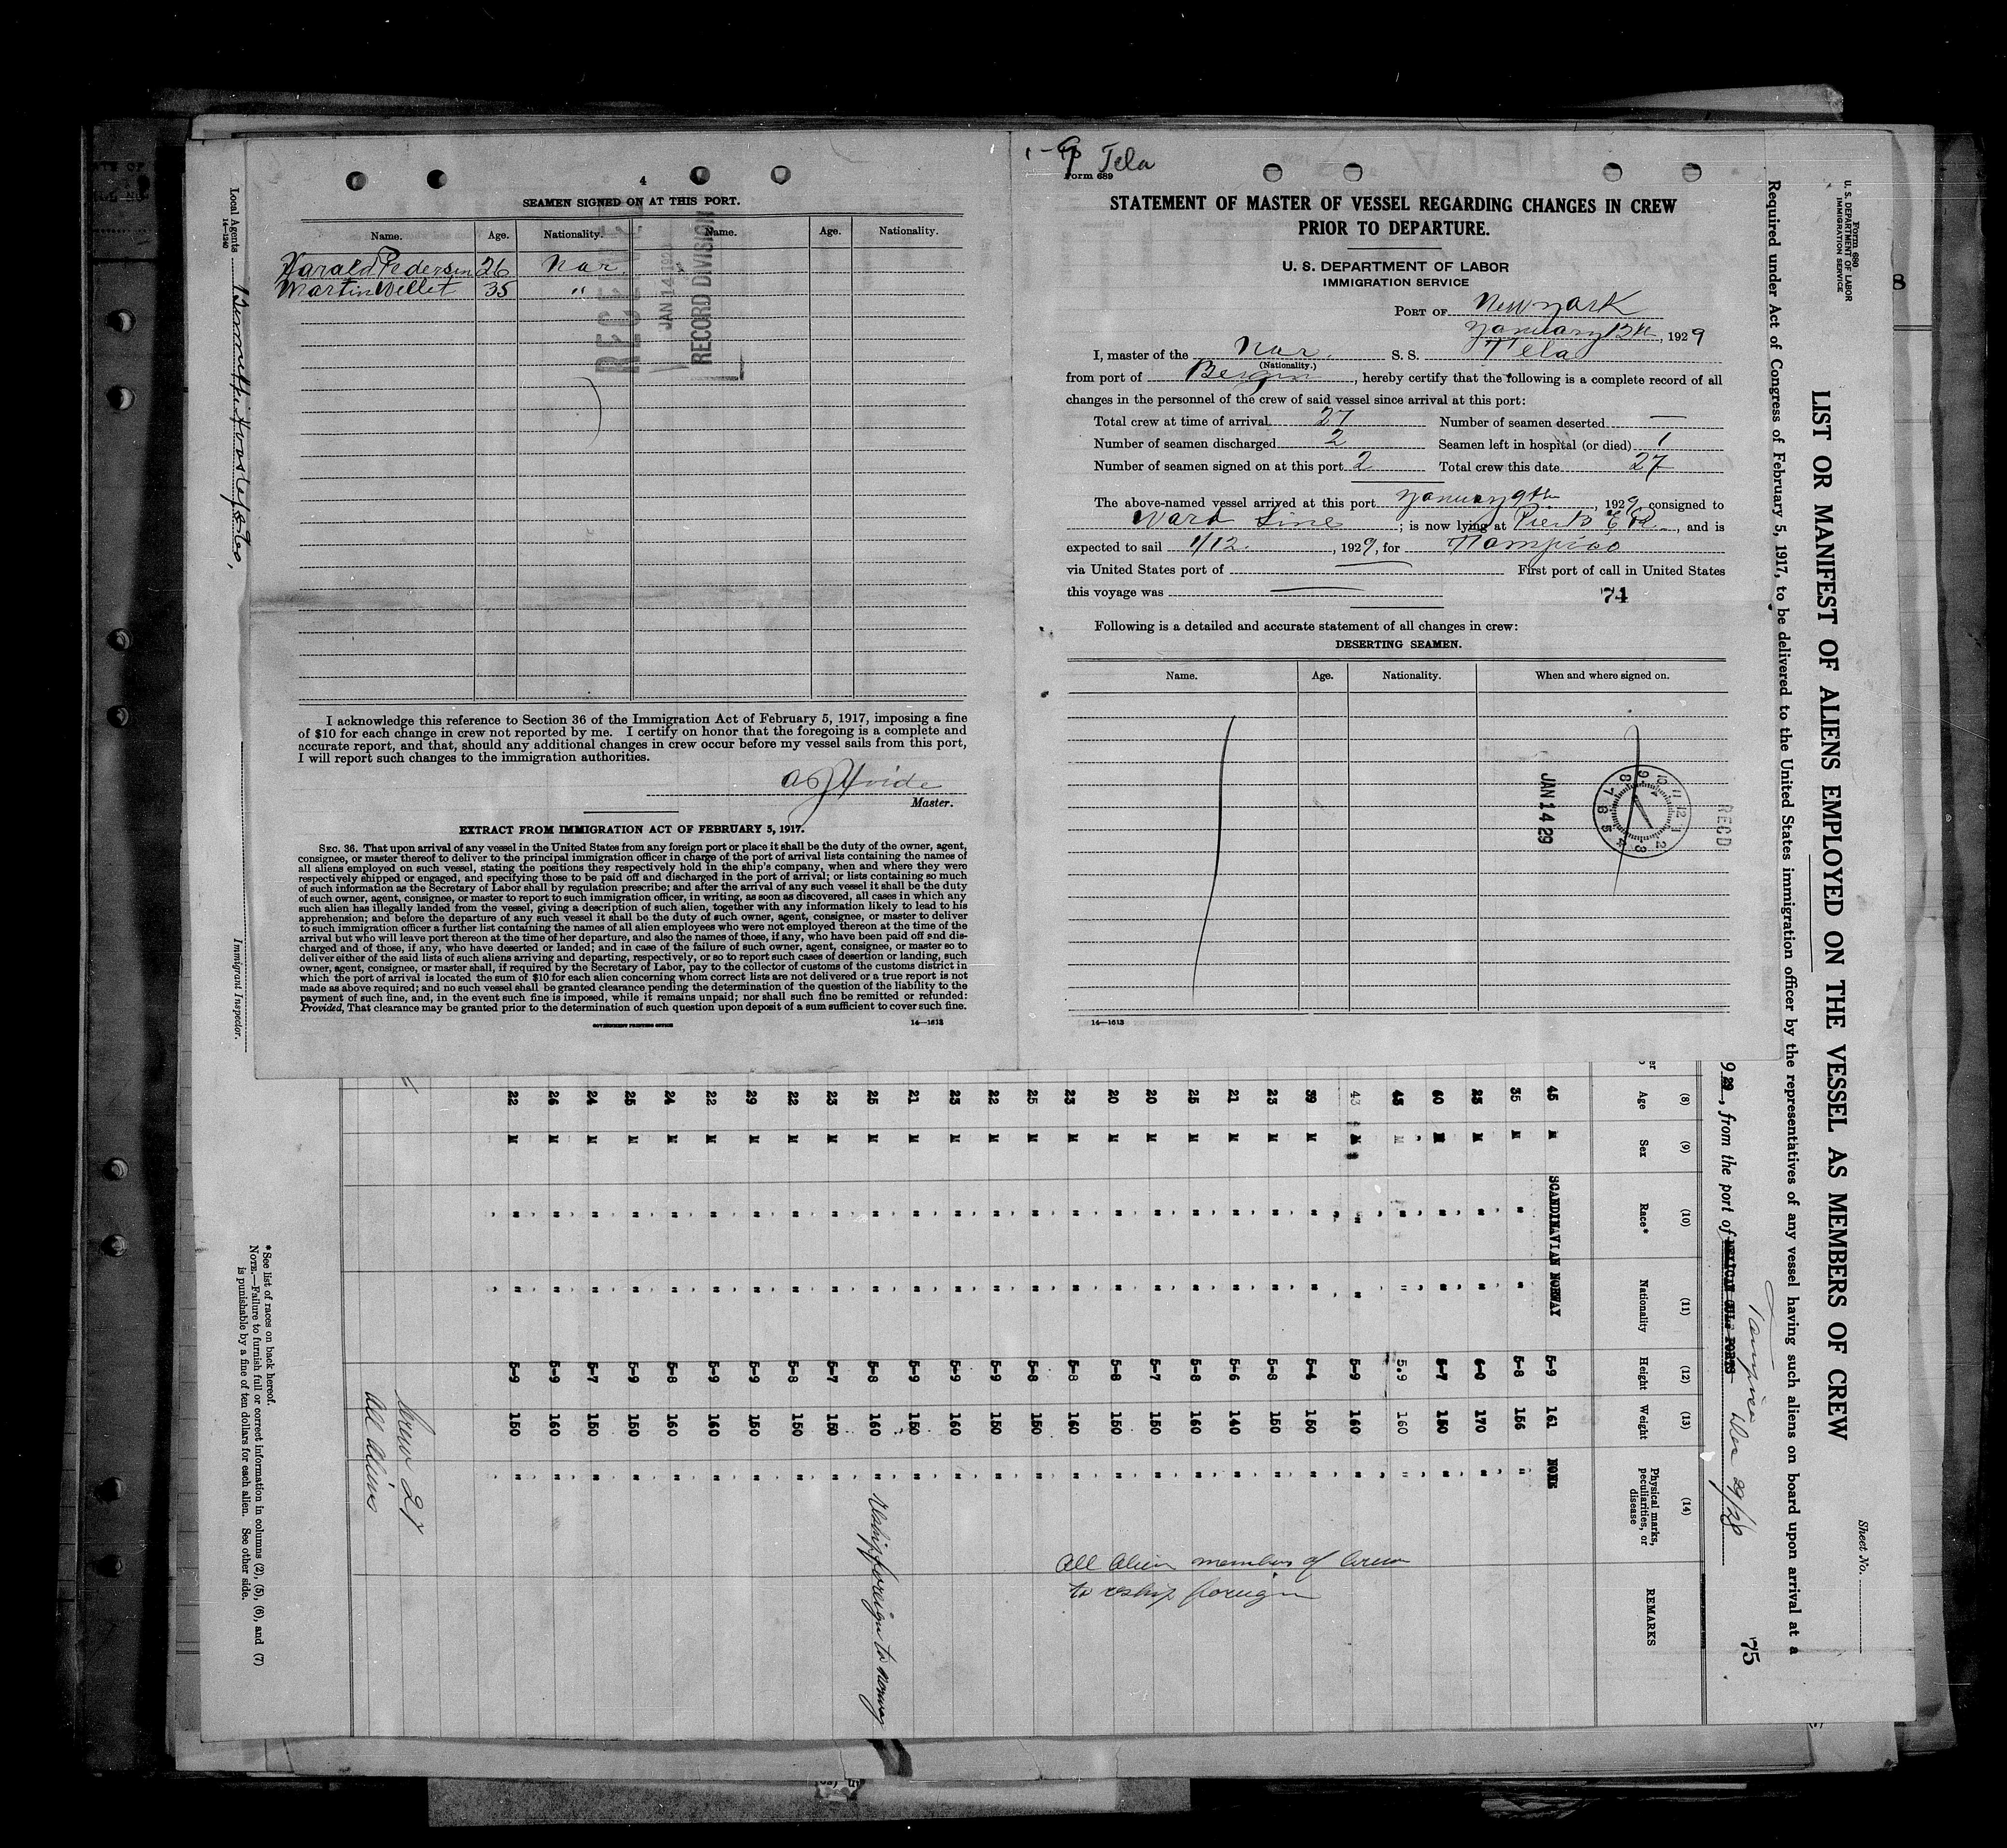 4
SEAMEN SIGNED ON AT THIS PORT.
Name. Age. Nationality. Name. Age. Nationality.
Harald Pedersen 26 Nor.
Martin Wellet 35 "
RECEIVED
JAN 14 1929
RECORD DIVISION
I acknowledge this reference to Section 36 of the Immigration Act of February 5, 1917, imposing a fine
of $10 for each change in crew not reported by me. I certify on honor that the foregoing is a complete and
accurate report, and that, should any additional changes in crew occur before my vessel sails from this port,
I will report such changes to the immigration authorities.
Master.
EXTRACT FROM IMMIGRATION ACT OF FEBRUARY 5, 1917.
SEC. 36. That upon arrival of any vessel in the United States from any foreign port or place it shall be the duty of the owner, agent,
consignee, or master thereof to deliver to the principal immigration officer in charge of the port of arrival lists containing the names of
all aliens employed on such vessel, stating the positions they respectively hold in the ship's company, when and where they were
respectively shipped or engaged, and specifying those to be paid off and discharged in the port of arrival; or lists containing so much
of such information as the Secretary of Labor shall by regulation prescribe; and after the arrival of any such vessel it shall be the duty
of such owner, agent, consignee, or master to report to such immigration officer, in writing, as soon as discovered, all cases in which any
such alien has illegally landed from the vessel, giving a description of such alien, together with any information likely to lead to his
apprehension; and before the departure of any such vessel it shall be the duty of such owner, agent, consignee, or master to deliver
to such immigration officer a further list containing the names of all alien employees who were not employed thereon at the time of the
arrival but who will leave port thereon at the time of her departure, and also the names of those, if any, who have been paid off and dis-
charged and of those, if any, who have deserted or landed; and in case of the failure of such owner, agent, consignee, or master so to
deliver either of the said lists of such aliens arriving and departing, respectively, or so to report such cases of desertion or landing, such
owner, agent, consignee, or master shall, if required by the Secretary of Labor, pay to the collector of customs of the customs district in
which the port of arrival is located the sum of $10 for each alien concerning whom correct lists are not delivered or a true report is not
made as above required; and no such vessel shall be granted clearance pending the determination of the question of the liability to the
payment of such fine, and, in the event such fine is imposed, while it remains unpaid; nor shall such fine be remitted or refunded:
Provided, That clearance may be granted prior to the determination of such question upon deposit of a sum sufficient to cover such fine.
GOVERNMENT PRINTING OFFICE 14—1613
Tela
Form 689
STATEMENT OF MASTER OF VESSEL REGARDING CHANGES IN CREW
PRIOR TO DEPARTURE.
U. S. DEPARTMENT OF LABOR
IMMIGRATION SERVICE
PORT OF New York
January 12th, 1929
I, master of the Nor. S. S. Tela
(Nationality.)
from port of Bergen, hereby certify that the following is a complete record of all
changes in the personnel of the crew of said vessel since arrival at this port:
Total crew at time of arrival 27 Number of seamen deserted —
Number of seamen discharged 2 Seamen left in hospital (or died) 1
Number of seamen signed on at this port 2 Total crew this date 27
The above-named vessel arrived at this port January 9th, 1929, consigned to
Ward Line; is now lying at Pier E R., and is
expected to sail 1/12., 1929, for Tampico
via United States port of — First port of call in United States
this voyage was —
74
Following is a detailed and accurate statement of all changes in crew:
DESERTING SEAMEN.
Name. Age. Nationality. When and where signed on.
JAN 14 29
REC'D
14—1613
Form 680
U. S. DEPARTMENT OF LABOR
IMMIGRATION SERVICE
Sheet No.
LIST OR MANIFEST OF ALIENS EMPLOYED ON THE VESSEL AS MEMBERS OF CREW
Required under Act of Congress of February 5, 1917, to be delivered to the United States immigration officer by the representatives of any vessel having such aliens on board upon arrival at a
9 29, from the port of MEXICAN GULF PORTS Tampico Dec 29/28
75
(8) (9) (10) (11) (12) (13) (14)
Age Sex Race* Nationality Height Weight Physical marks, peculiarities, or disease REMARKS
45 M SCANDINAVIAN NORWAY 5-9 161 NONE
35 M " " 5-8 156 "
25 M " " 6-0 170 "
60 M " " 5-7 150 "
45 M " " 5-9 160 "
43 M " " 5-9 160 "
39 M " " 5-4 150 "
23 M " " 5-8 150 "
21 M " " 5-6 140 "
25 M " " 5-8 160 "
20 M " " 5-7 150 "
20 M " " 5-8 150 "
23 M " " 5-8 160 "
25 M " " 5-8 150 "
22 M " " 5-9 150 "
23 M " " 5-9 160 "
21 M " " 5-9 150 "
25 M " " 5-8 160 " Reship foreign to Norway
23 M " " 5-7 150 "
22 M " " 5-8 150 "
29 M " " 5-9 150 "
22 M " " 5-9 160 "
24 M " " 5-8 160 "
25 M " " 5-9 150 "
24 M " " 5-7 150 "
26 M " " 5-9 160 "
22 M " " 5-9 150 "
All Alien members of Crew
to reship foreign
Crew 27
All Aliens
*See list of races on back hereof.
NOTE.—Failure to furnish full or correct information in columns (2), (5), (6), and (7)
is punishable by a fine of ten dollars for each alien. See other side.
Local Agents
14—1240
Immigrant Inspector.
8